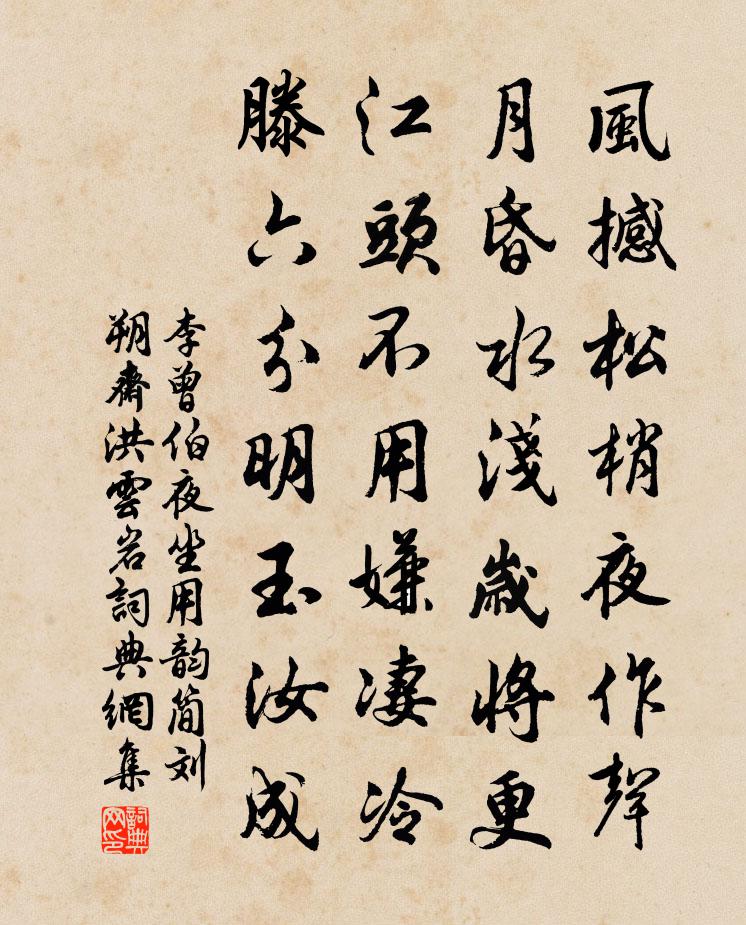 風撼松梢夜作聲
月昏水淺歲將更
江頭不用嫌淒冷
滕六分明玉汝成
李曾伯夜坐用韵简刘
朔齋洪雲岩詞典網集
詞典网印